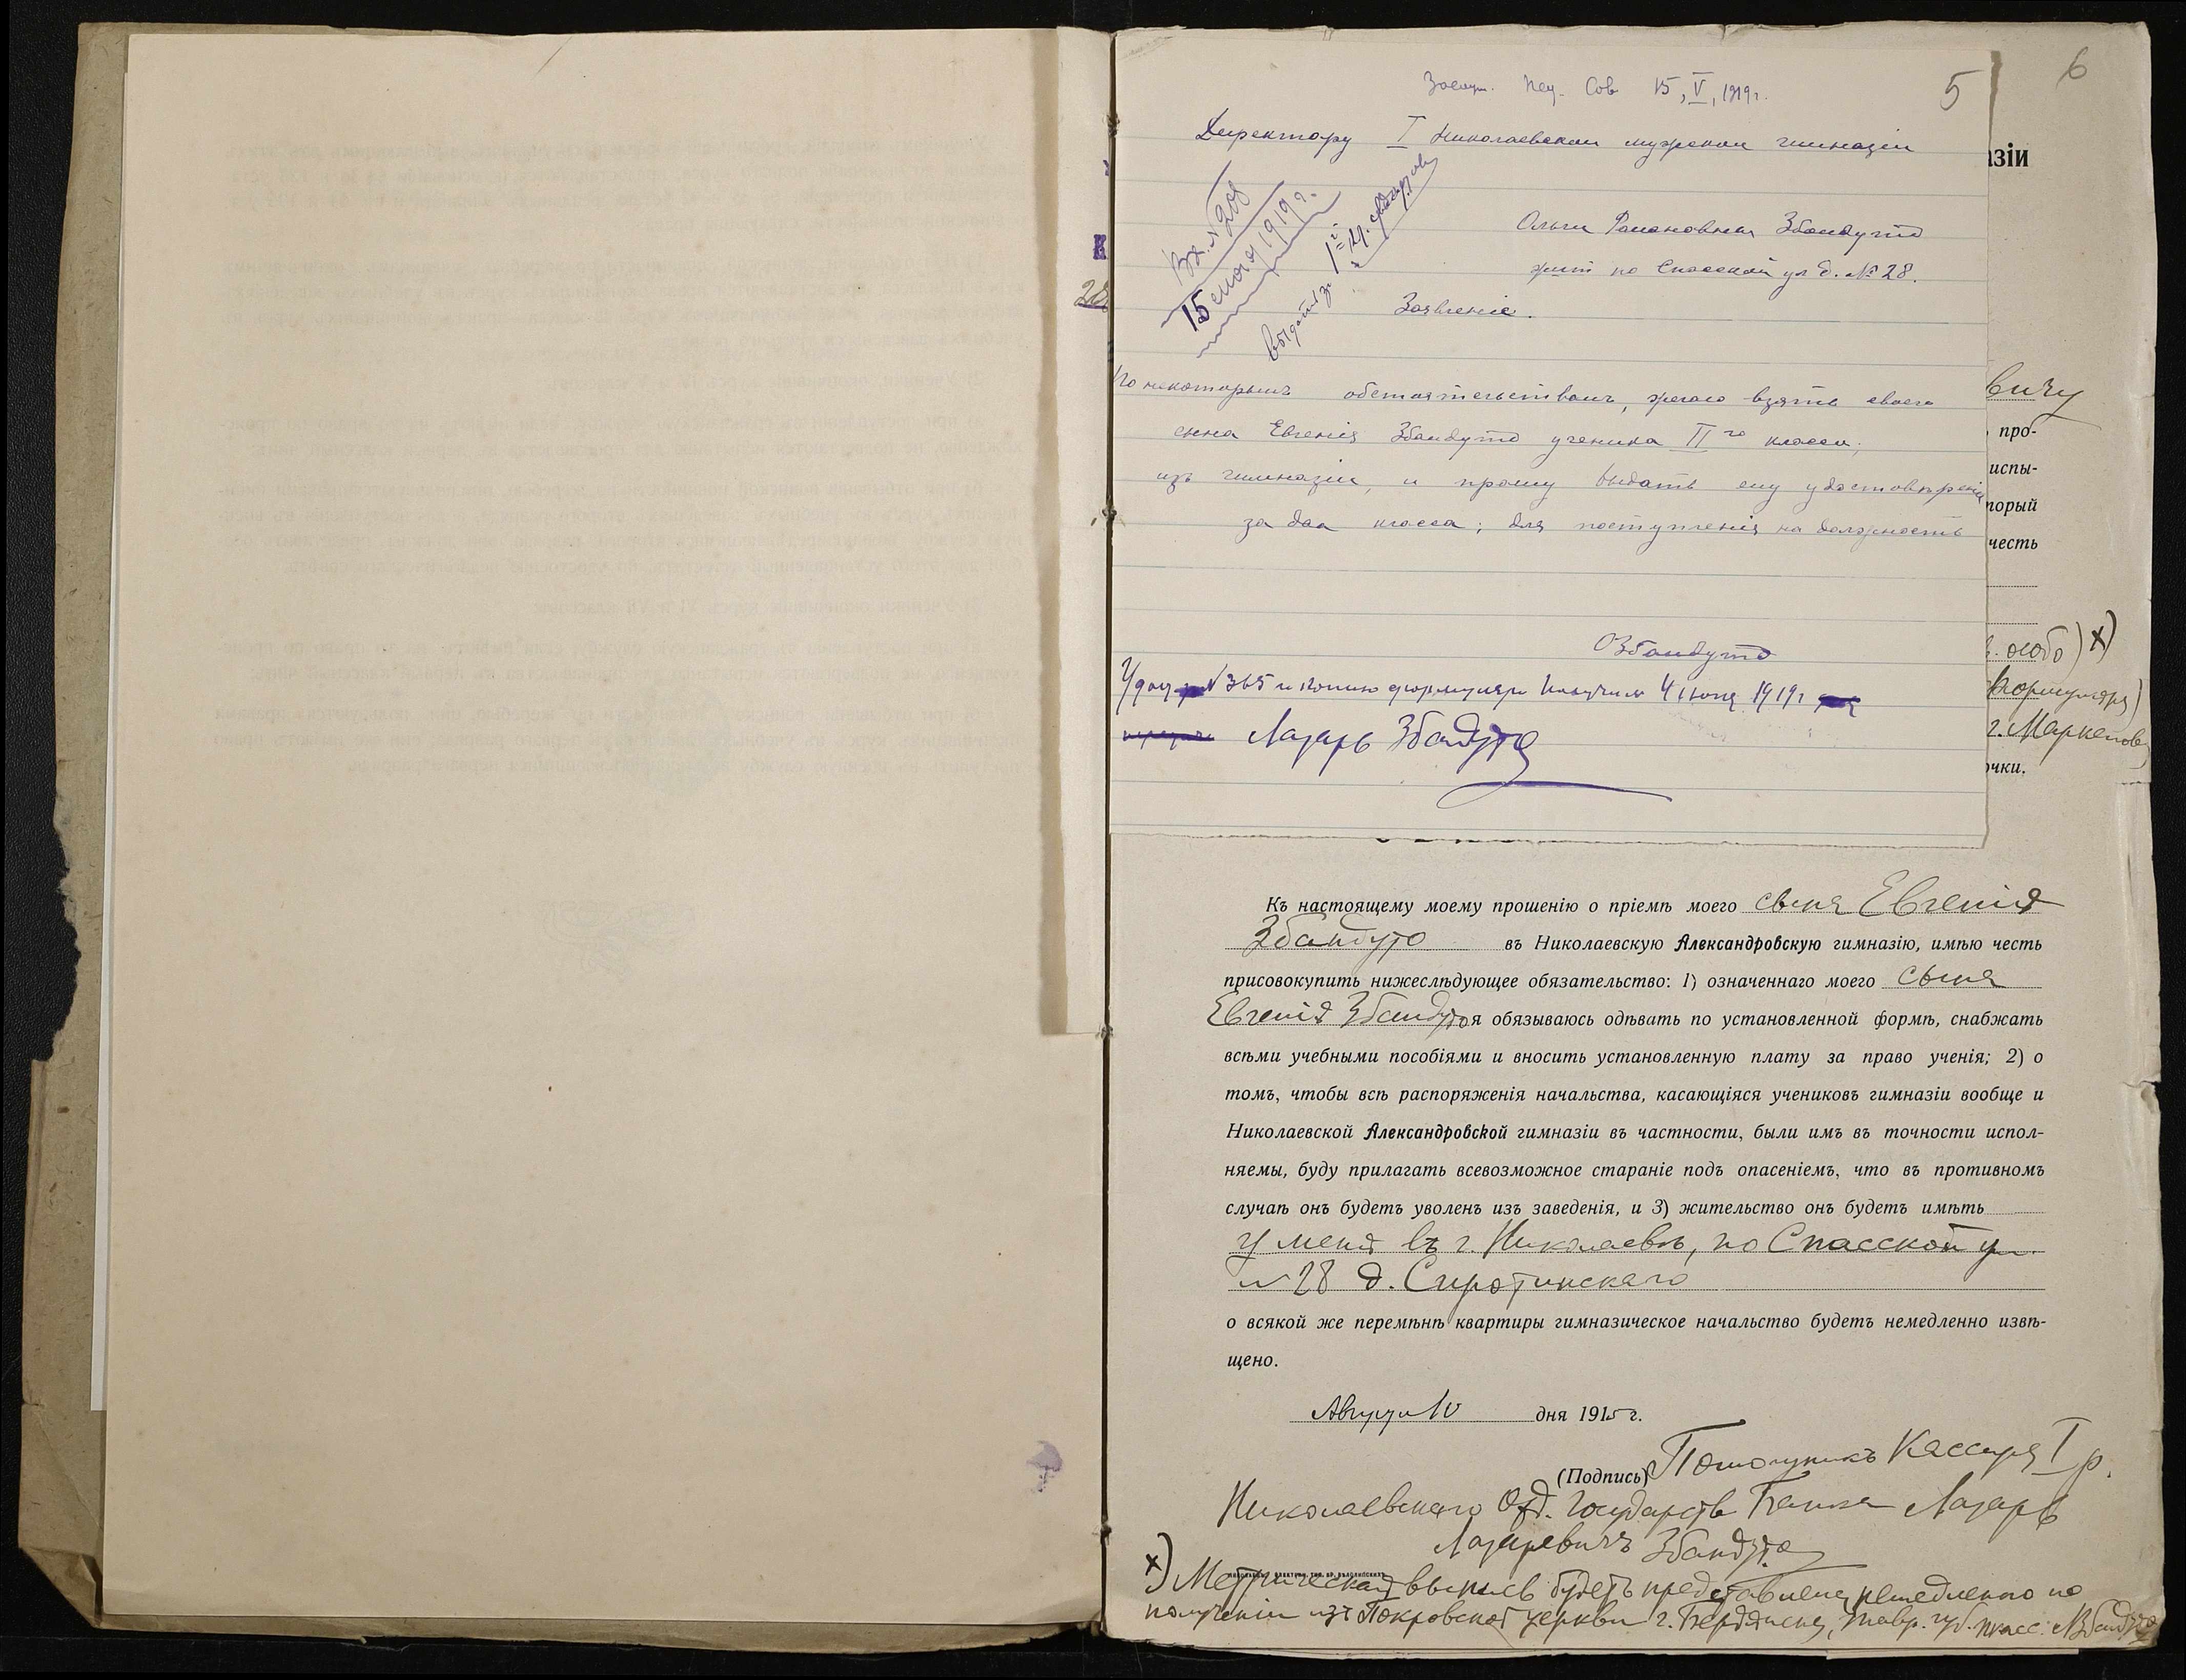 Пед. Сов 15, V, 1919 г.
5
6
Директору I Николаевской мужской гимназіи
Вх. № 208
15 мая 1919 г.
Ольги Романовны Збандуто
жит по Спасской ул д. № 28.
Заявленіе.
По некоторымъ обстоятельствамъ, желаю взять своего
сына Евгенія Збандуто ученика II го класса,
изъ гимназіи, и прошу выдать ему удостовѣреніе
за два класса; для поступленія на должность
ОЗбандуто
Удост № 365 и копию формуляра получилъ 4 июня 1919 г
Лазарь Збандуто
азіи
вичу
про-
испы-
торый
честь
особо) х)
формуляра)
очки.
Къ настоящему моему прошенію о пріемѣ моего сына Евгенія
Збандуто въ Николаевскую Александровскую гимназію, имѣю честь
присовокупить нижеслѣдующее обязательство: 1) означеннаго моего сына
Евгенія Збандуто я обязываюсь одѣвать по установленной формѣ, снабжать
всѣми учебными пособіями и вносить установленную плату за право ученія; 2) о
томъ, чтобы всѣ распоряженія начальства, касающіяся учениковъ гимназіи вообще и
Николаевской Александровской гимназіи въ частности, были имъ въ точности испол-
няемы, буду прилагать всевозможное стараніе подъ опасеніемъ, что въ противномъ
случаѣ онъ будетъ уволенъ изъ заведенія, и 3) жительство онъ будетъ имѣть
у меня въ г. Николаевѣ, по Спасской ул.
№ 28 д. Сиротинскаго
о всякой же перемѣнѣ квартиры гимназическое начальство будетъ немедленно извѣ-
щено.
Августа 10 дня 1915 г.
(Подпись) Помощникъ Кассира I р.
Николаевскаго Отд. Государств Банка Лазарь
Лазаревичъ Збандуто
х) Метрическая выпись будетъ представлена немедленно по
полученіи изъ Покровской церкви г. Бердянска, Тавр. губ. Збандуто